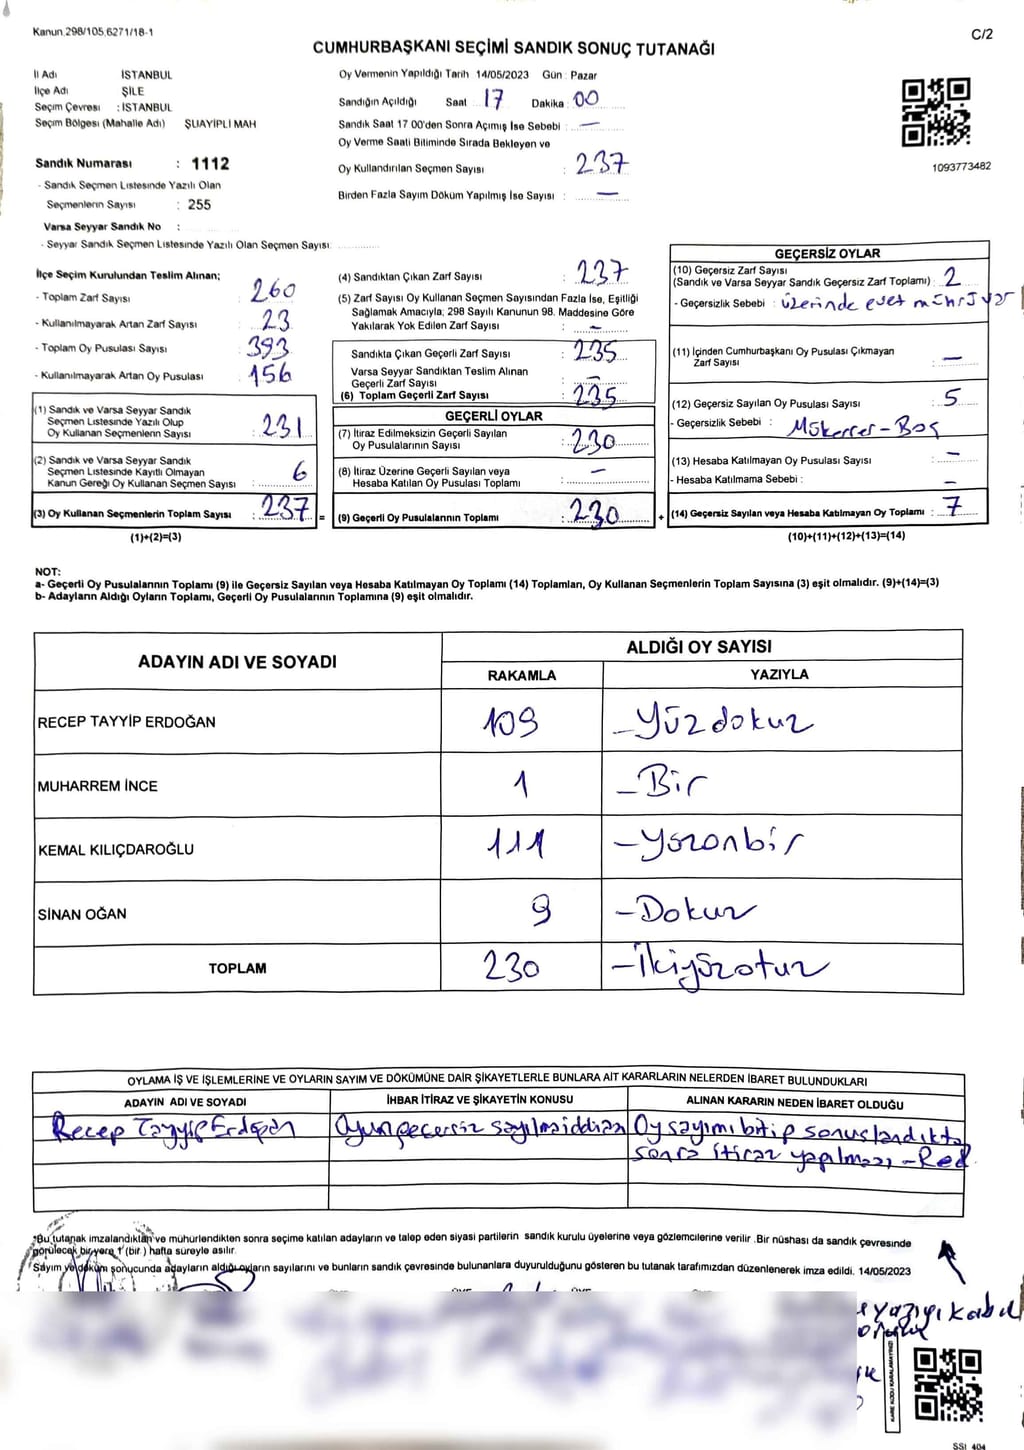 Kanun.298/105.6271/18-1
C/2
CUMHURBAŞKANI SEÇİMİ SANDIK SONUÇ TUTANAĞI
İl Adı İSTANBUL
İlçe Adı ŞİLE
Seçim Çevresi : İSTANBUL
Seçim Bölgesi (Mahalle Adı) ŞUAYİPLİ MAH
Sandık Numarası : 1112
- Sandık Seçmen Listesinde Yazılı Olan
Seçmenlerin Sayısı : 255
Varsa Seyyar Sandık No :
- Seyyar Sandık Seçmen Listesinde Yazılı Olan Seçmen Sayısı
Oy Vermenin Yapıldığı Tarih 14/05/2023 Gün : Pazar
Sandığın Açıldığı Saat 17 Dakika : 00
Sandık Saat 17 00'den Sonra Açımış İse Sebebi : —
Oy Verme Saati Bitiminde Sırada Bekleyen ve
Oy Kullandırılan Seçmen Sayısı : 237
Birden Fazla Sayım Döküm Yapılmış İse Sayısı : —
1093773482
İlçe Seçim Kurulundan Teslim Alınan;
- Toplam Zarf Sayısı : 260
- Kullanılmayarak Artan Zarf Sayısı : 23
- Toplam Oy Pusulası Sayısı : 393
- Kullanılmayarak Artan Oy Pusulası : 156
(1) Sandık ve Varsa Seyyar Sandık
Seçmen Listesinde Yazılı Olup
Oy Kullanan Seçmenlerin Sayısı : 231
(2) Sandık ve Varsa Seyyar Sandık
Seçmen Listesinde Kayıtlı Olmayan
Kanun Gereği Oy Kullanan Seçmen Sayısı : 6
(3) Oy Kullanan Seçmenlerin Toplam Sayısı : 237 =
(1)+(2)=(3)
(4) Sandıktan Çıkan Zarf Sayısı : 237
(5) Zarf Sayısı Oy Kullanan Seçmen Sayısından Fazla İse, Eşitliği
Sağlamak Amacıyla; 298 Sayılı Kanunun 98. Maddesine Göre
Yakılarak Yok Edilen Zarf Sayısı : —
Sandıkta Çıkan Geçerli Zarf Sayısı : 235
Varsa Seyyar Sandıktan Teslim Alınan
Geçerli Zarf Sayısı : —
(6) Toplam Geçerli Zarf Sayısı : 235
GEÇERLİ OYLAR
(7) İtiraz Edilmeksizin Geçerli Sayılan
Oy Pusulalarının Sayısı : 230
(8) İtiraz Üzerine Geçerli Sayılan veya
Hesaba Katılan Oy Pusulası Toplamı : —
(9) Geçerli Oy Pusulalarının Toplamı : 230 +
GEÇERSİZ OYLAR
(10) Geçersiz Zarf Sayısı
(Sandık ve Varsa Seyyar Sandık Geçersiz Zarf Toplamı) : 2
- Geçersizlik Sebebi : üzerinde evet mührü var
(11) İçinden Cumhurbaşkanı Oy Pusulası Çıkmayan
Zarf Sayısı : —
(12) Geçersiz Sayılan Oy Pusulası Sayısı : 5
- Geçersizlik Sebebi : Mükerrer-Boş
(13) Hesaba Katılmayan Oy Pusulası Sayısı : —
- Hesaba Katılmama Sebebi : —
(14) Geçersiz Sayılan veya Hesaba Katılmayan Oy Toplamı : 7
(10)+(11)+(12)+(13)=(14)
NOT:
a- Geçerli Oy Pusulalarının Toplamı (9) ile Geçersiz Sayılan veya Hesaba Katılmayan Oy Toplamı (14) Toplamları, Oy Kullanan Seçmenlerin Toplam Sayısına (3) eşit olmalıdır. (9)+(14)=(3)
b- Adayların Aldığı Oyların Toplamı, Geçerli Oy Pusulalarının Toplamına (9) eşit olmalıdır.
ADAYIN ADI VE SOYADI ALDIĞI OY SAYISI
RAKAMLA YAZIYLA
RECEP TAYYİP ERDOĞAN 109 -Yüzdokuz
MUHARREM İNCE 1 -Bir
KEMAL KILIÇDAROĞLU 111 -Yüzonbir
SİNAN OĞAN 9 -Dokuz
TOPLAM 230 -İkiyüzotuz
OYLAMA İŞ VE İŞLEMLERİNE VE OYLARIN SAYIM VE DÖKÜMÜNE DAİR ŞİKAYETLERLE BUNLARA AİT KARARLARIN NELERDEN İBARET BULUNDUKLARI
ADAYIN ADI VE SOYADI İHBAR İTİRAZ VE ŞİKAYETİN KONUSU ALINAN KARARIN NEDEN İBARET OLDUĞU
Recep Tayyip Erdoğan Oyun geçersiz sayılması iddiası Oy sayımı bitip sonuçlandıktan
sonra itiraz yapılması -Red
*Bu tutanak imzalandıktan ve mühürlendikten sonra seçime katılan adayların ve talep eden siyasi partilerin sandık kurulu üyelerine veya gözlemcilerine verilir .Bir nüshası da sandık çevresinde
görülecek bir yere 1 (bir ) hafta süreyle asılır.
*Sayım ve döküm sonucunda adayların aldığı oyların sayılarını ve bunların sandık çevresinde bulunanlara duyurulduğunu gösteren bu tutanak tarafımızdan düzenlenerek imza edildi. 14/05/2023
yazıyı kabul
KARE KODU KARALAMAYINIZ!
SSI 404